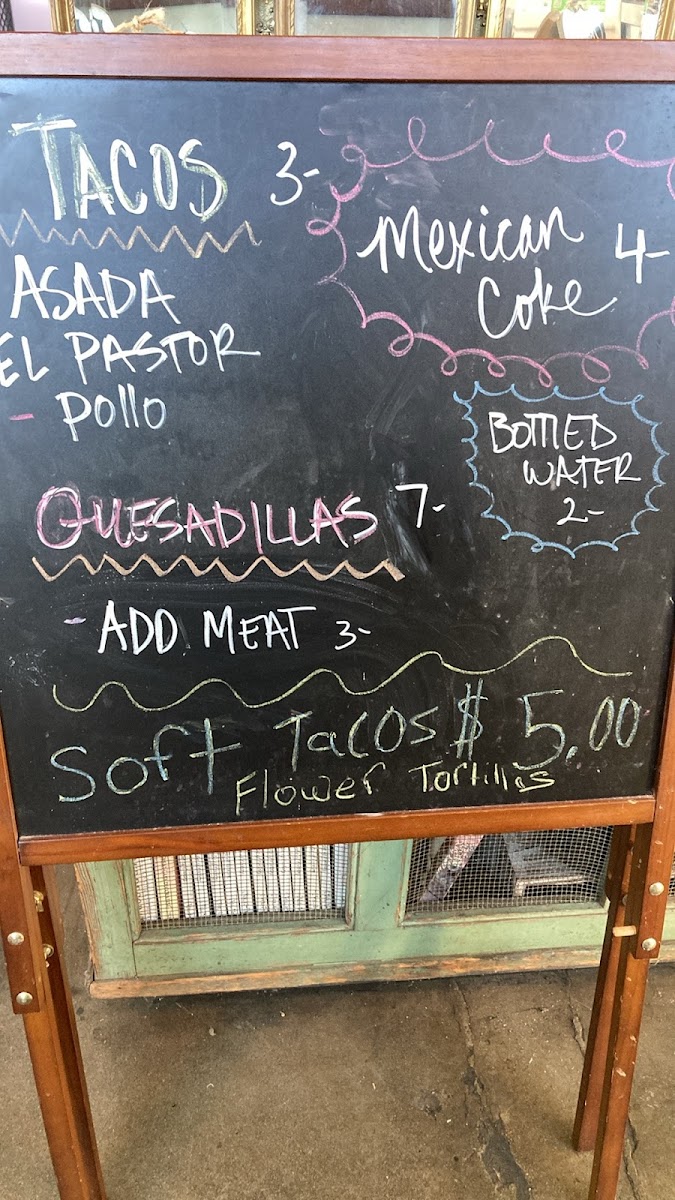 TACOS 3-
ASADA
EL PASTOR
- Pollo
Mexican 4-
Coke
BOTTLED
WATER
2-
QUESADILLAS 7-
- ADD MEAT 3-
Soft Tacos $ 5.00
Flower Tortillis